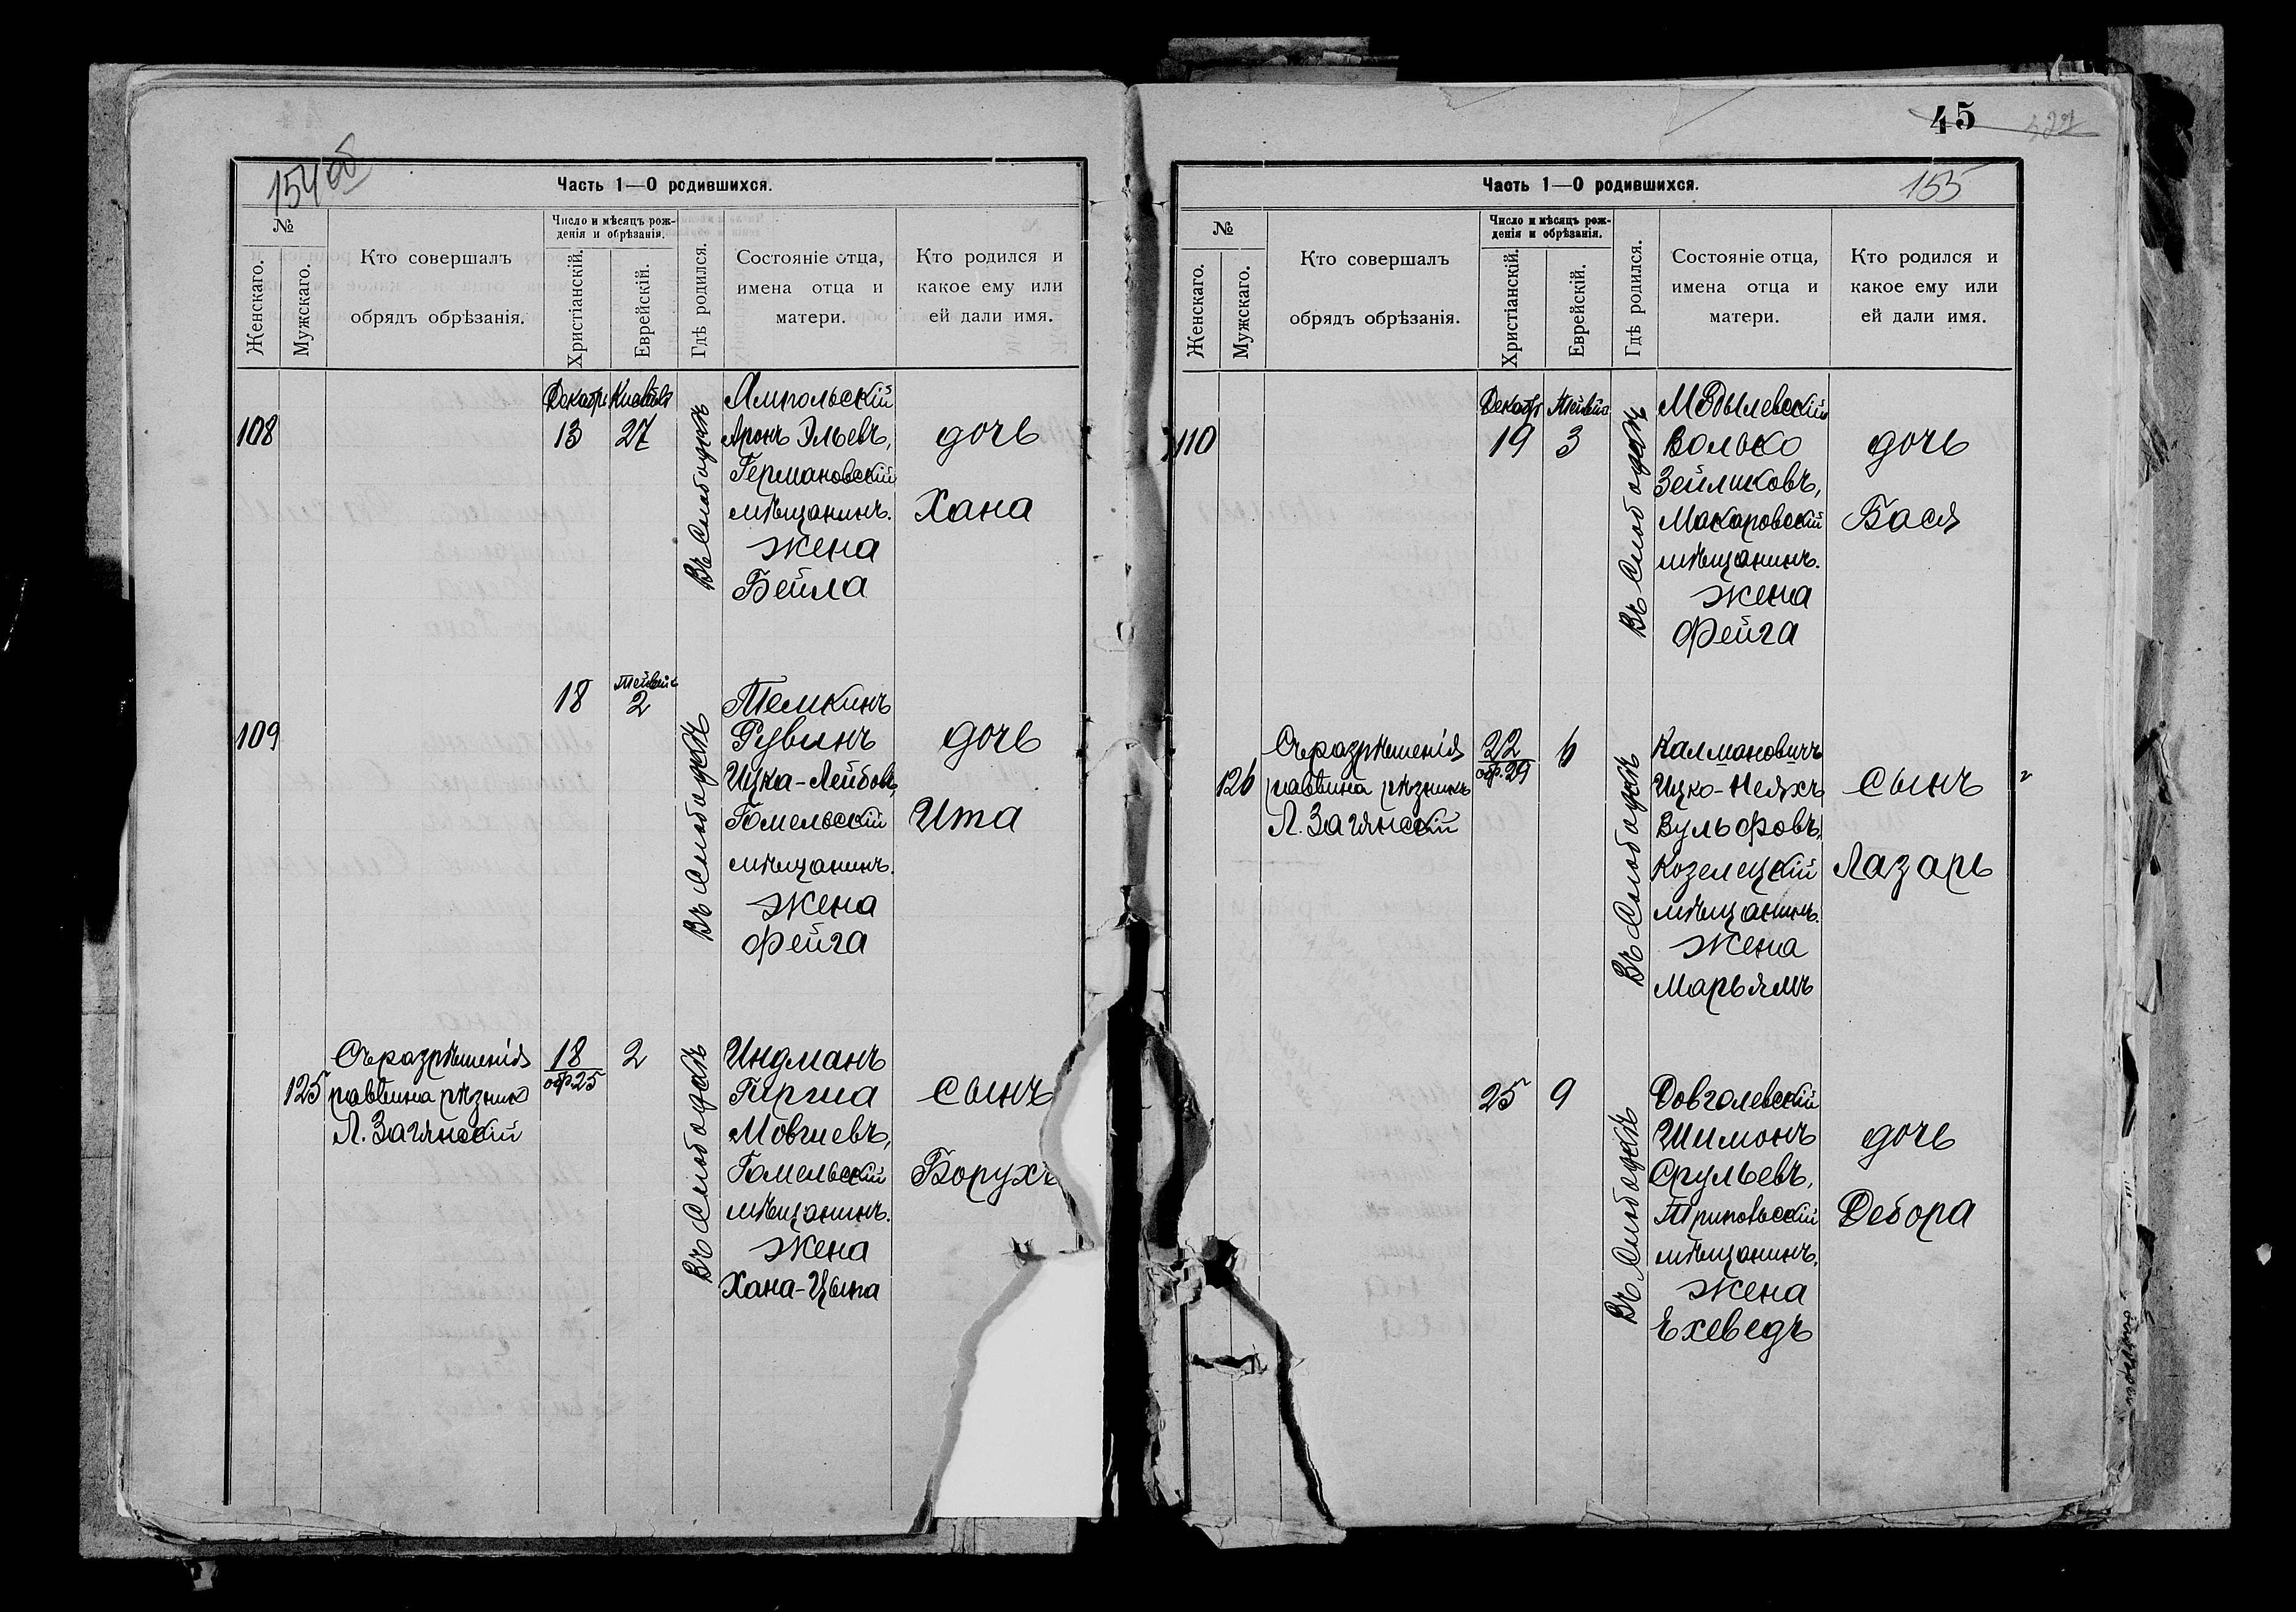 154 об
Часть 1—О родившихся.
№
Женскаго.
Мужскаго.
Кто совершалъ
обрядъ обрѣзанія.
Число и мѣсяцъ рож-
денія и обрѣзанія.
Христіанскій.
Еврейскій.
Гдѣ родился.
Состояніе отца,
имена отца и
матери.
Кто родился и
какое ему или
ей дали имя.
108
Декабрь
13
Кислевъ
27
Въ Слободкѣ
Ямпольскій
Аронъ Эльевъ,
Германовскій
мѣщанинъ.
жена
Бейла
дочь
Хана
109
18
Тейвейс
2
Въ Слободкѣ
Темкинъ
Рувинъ
Ицка-Лейбовъ,
Гомельскій
мѣщанинъ.
жена
Фейга
дочь
Ита
125
Съ разрѣшенія
раввина рѣзник
Л. Загянскій
18
обр. 25
2
Въ Слободкѣ
Индманъ
Пиргиа
Мовшевъ,
Гомельскій
мѣщанинъ.
жена
Хана-Цыпа
сынъ
Борухъ
45
155
Часть 1—О родившихся.
№
Женскаго.
Мужскаго.
Кто совершалъ
обрядъ обрѣзанія.
Число и мѣсяцъ рож-
денія и обрѣзанія.
Христіанскій.
Еврейскій.
Гдѣ родился.
Состояніе отца,
имена отца и
матери.
Кто родился и
какое ему или
ей дали имя.
110
Декабрь
19
Тейвейс
3
Въ Слободкѣ
Волько
Зейликовъ,
Макаровскій
мѣщанинъ.
жена
Фейга
дочь
Бася
126
Съ разрѣшенія
раввина рѣзникъ
Л. Загянскій
22
обр. 29
6
Въ Слободкѣ
Калмановичъ
Ицко-Неяхъ
Вульфовъ,
Козелецкій
мѣщанинъ.
жена
Марьямъ
сынъ
Лазарь
25
9
Въ Слободкѣ
Довгалевскій
Шимонъ
Срульевъ,
Трипольскій
мѣщанинъ.
жена
Ехеведъ
дочь
Дебора